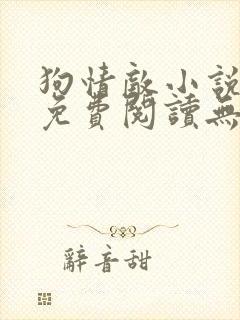 狗情敵小說
免費閱讀無
辭音甜